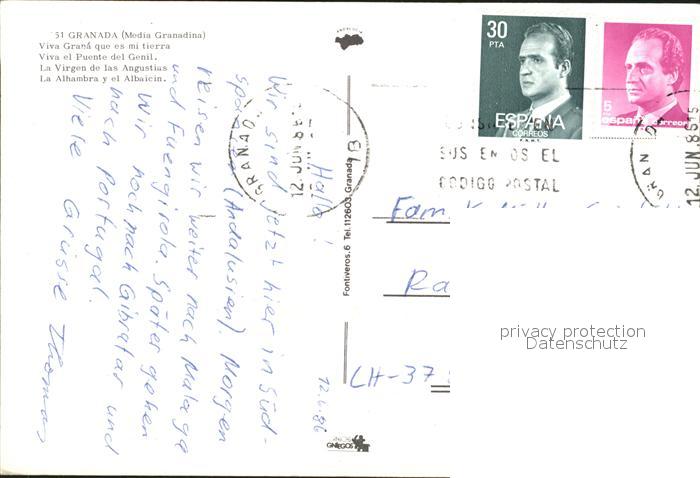 51 GRANADA (Media Granadina)
Viva Graná que es mi tierra
Viva el Puente del Genil.
La Virgen de las Angustias
La Alhambra y el Albaicín.
30
PTA
ESPAÑA
CORREOS
5
españa correos
GRANADA
12.JUN.86
SUS ENVIOS EL
CODIGO POSTAL
12.JUN.86
Fontiveros, 6 Tel. 112603. Granada
12.6.86
Hallo!
Wir sind jetzt hier in Süd-
spanien (Andalusien). Morgen
reisen wir weiter nach Malaga
und Fuengirola. Später gehen
Wir noch nach Gibraltar und
nach Portugal.
Viele Grüsse Thomas
Fam.
Ra
CH-37
privacy protection
Datenschutz